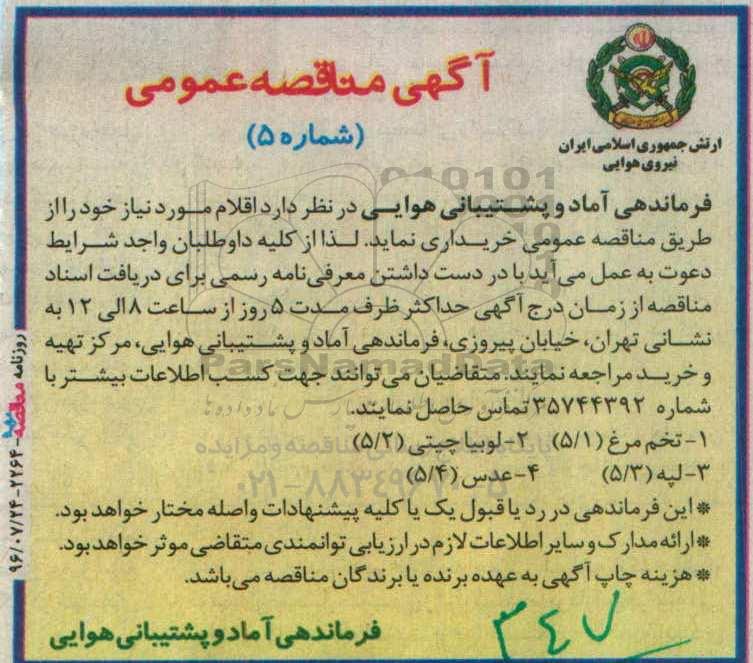 آگهی مناقصه عمومی
(شماره ۵)
ارتش جمهوری اسلامی ایران
نیروی هوایی
فرماندهی آماد و پشتیبانی هوایی در نظر دارد اقلام مورد نیاز خود را از
طریق مناقصه عمومی خریداری نماید. لذا از کلیه داوطلبان واجد شرایط
دعوت به عمل می‌آید با در دست داشتن معرفی‌نامه رسمی برای دریافت اسناد
مناقصه از زمان درج آگهی حداکثر ظرف مدت ۵ روز از ساعت ۸ الی ۱۲ به
نشانی تهران، خیابان پیروزی، فرماندهی آماد و پشتیبانی هوایی، مرکز تهیه
و خرید مراجعه نمایند. متقاضیان می‌توانند جهت کسب اطلاعات بیشتر با
شماره ۳۵۷۴۴۳۹۲ تماس حاصل نمایند.
۱- تخم مرغ (۵/۱) ۲- لوبیا چیتی (۵/۲)
۳- لپه (۵/۳) ۴- عدس (۵/۴)
* این فرماندهی در رد یا قبول یک یا کلیه پیشنهادات واصله مختار خواهد بود.
* ارائه مدارک و سایر اطلاعات لازم در ارزیابی توانمندی متقاضی موثر خواهد بود.
* هزینه چاپ آگهی به عهده برنده یا برندگان مناقصه می‌باشد.
فرماندهی آماد و پشتیبانی هوایی
۳۴۷
روزنامه مناقصه -۲۲۶۴- ۹۶/۰۷/۲۴
ParsNamadData
پایگاه مناقصه و مزایده